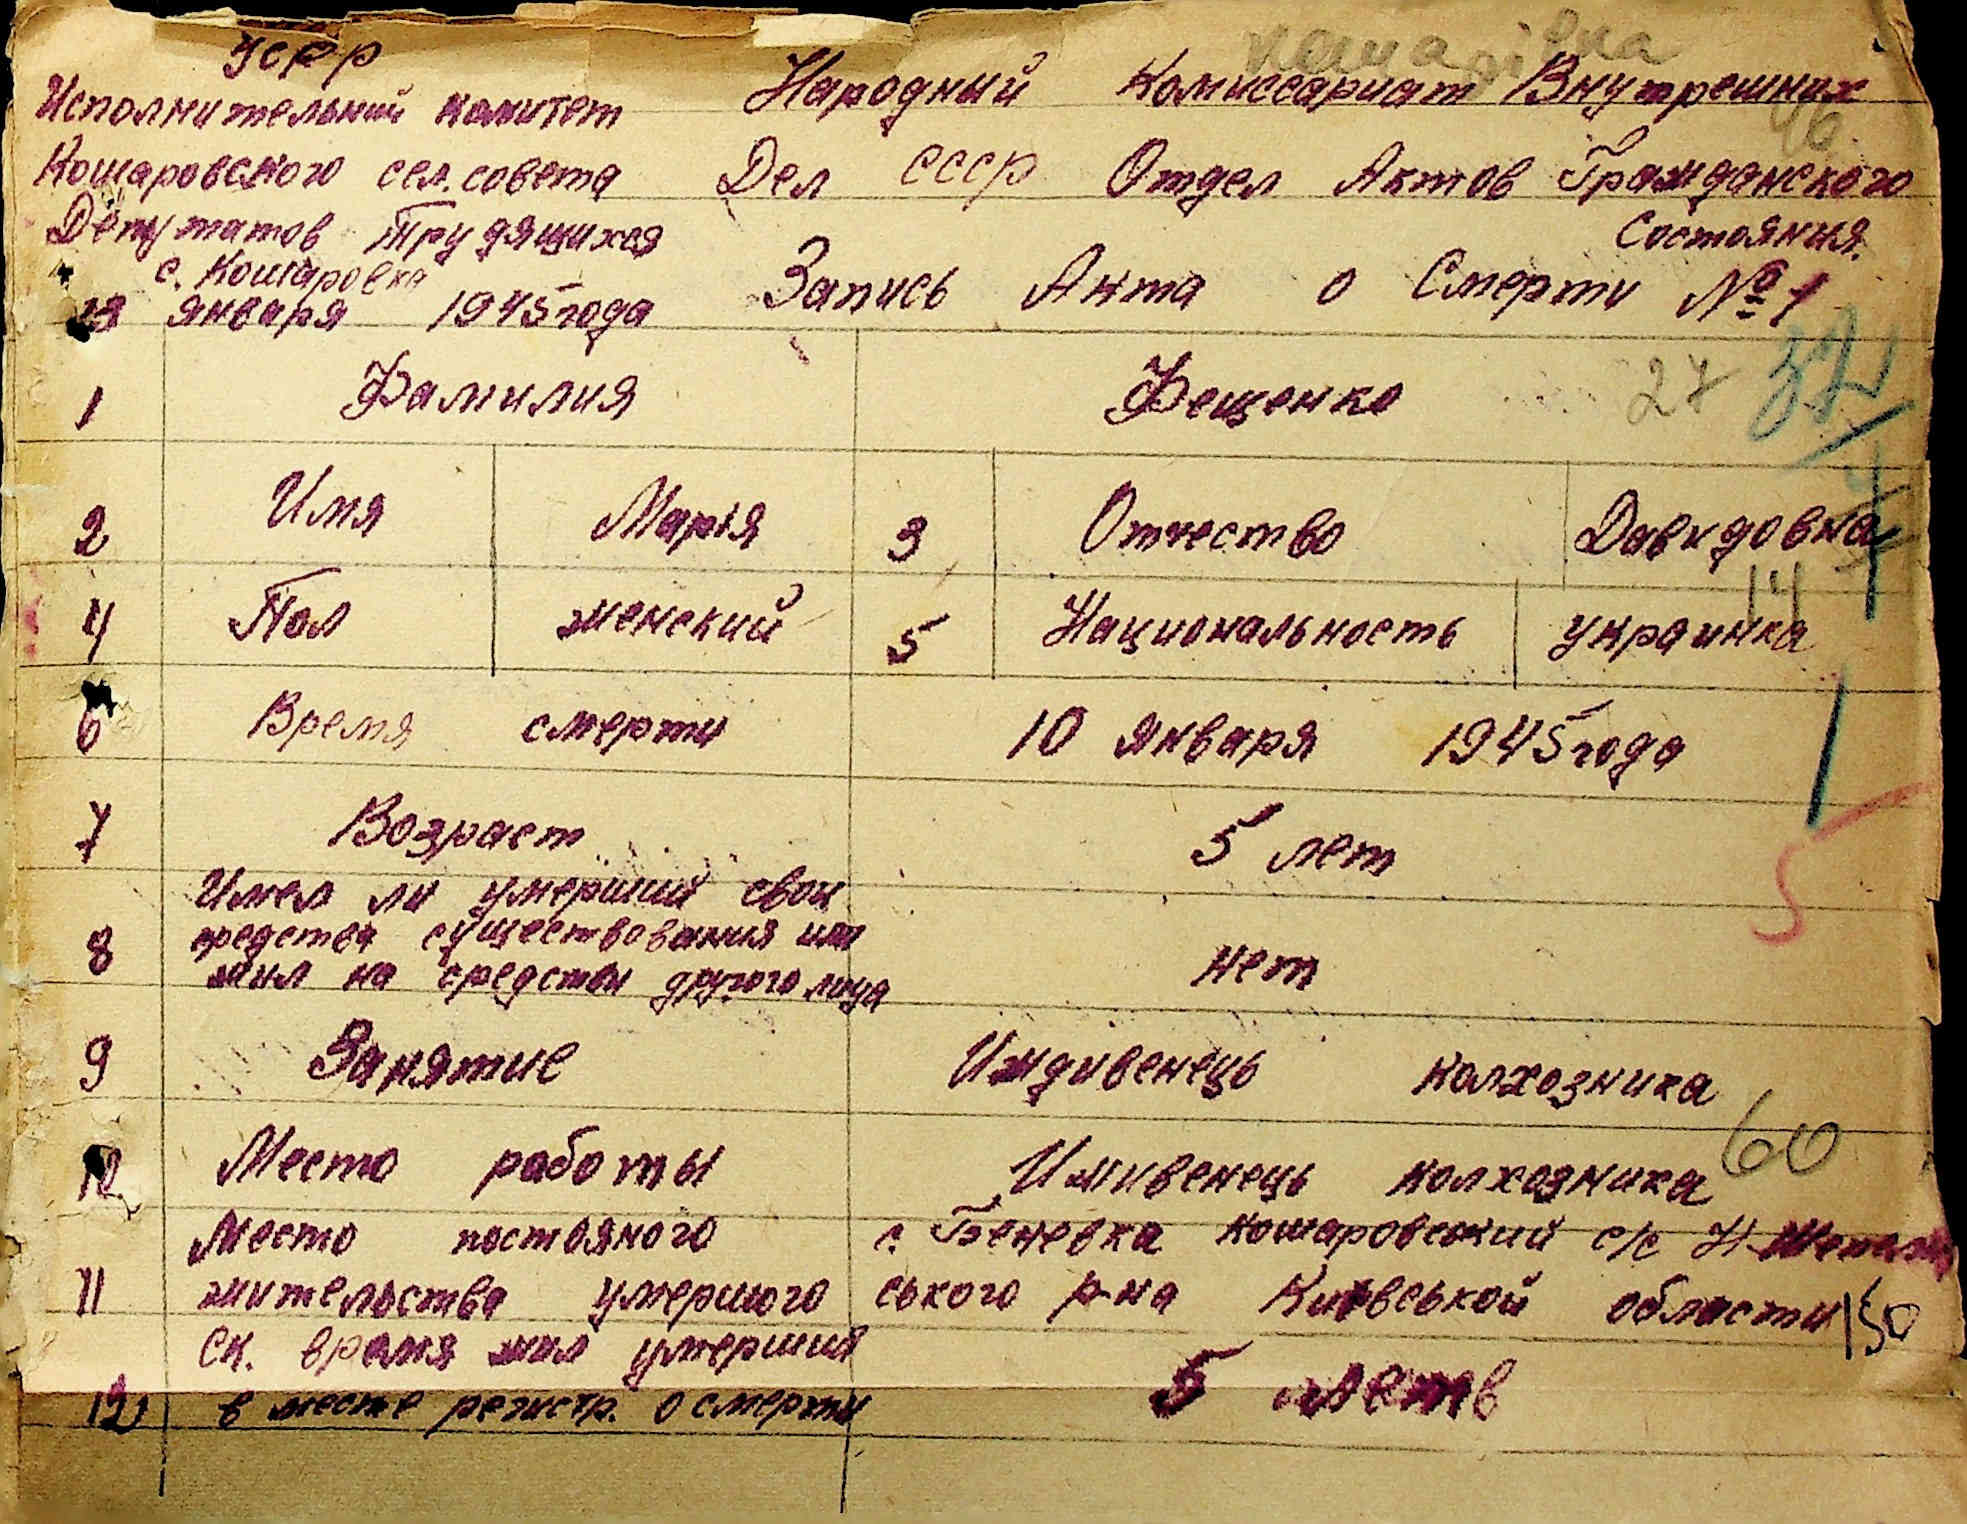 УССР
Исполнительний комитет
Кошаровского сел. совета
Депутатов Трудящихся
с. Кошаровка
13 января 1945 года
Кошарівка
Народний Комиссариат Внутрешних
Дел СССР Отдел Актов Гражданского
Состояния.
Запись Акта о Смерти № 1
1 Фамилия Фещенко 27 32
2 Имя Марія 3 Отчество Давидовна
14
4 Пол женский 5 Национальность украинка
6 Время смерти 10 января 1945 года
7 Возраст 5 лет
5
8 Имел ли умерший свои
средства существования или
жил на средства другого лица
нет
9 Занятие Иждивенець колхозника
60
10 Место работы Иживенець колхозника
11 Место постояного
жительства умершого
с. кошаровський с/с Н-
ського р-на Київськой области
150
12 Ск. время жил умерший
в месте регистр. о смерти
5 летв